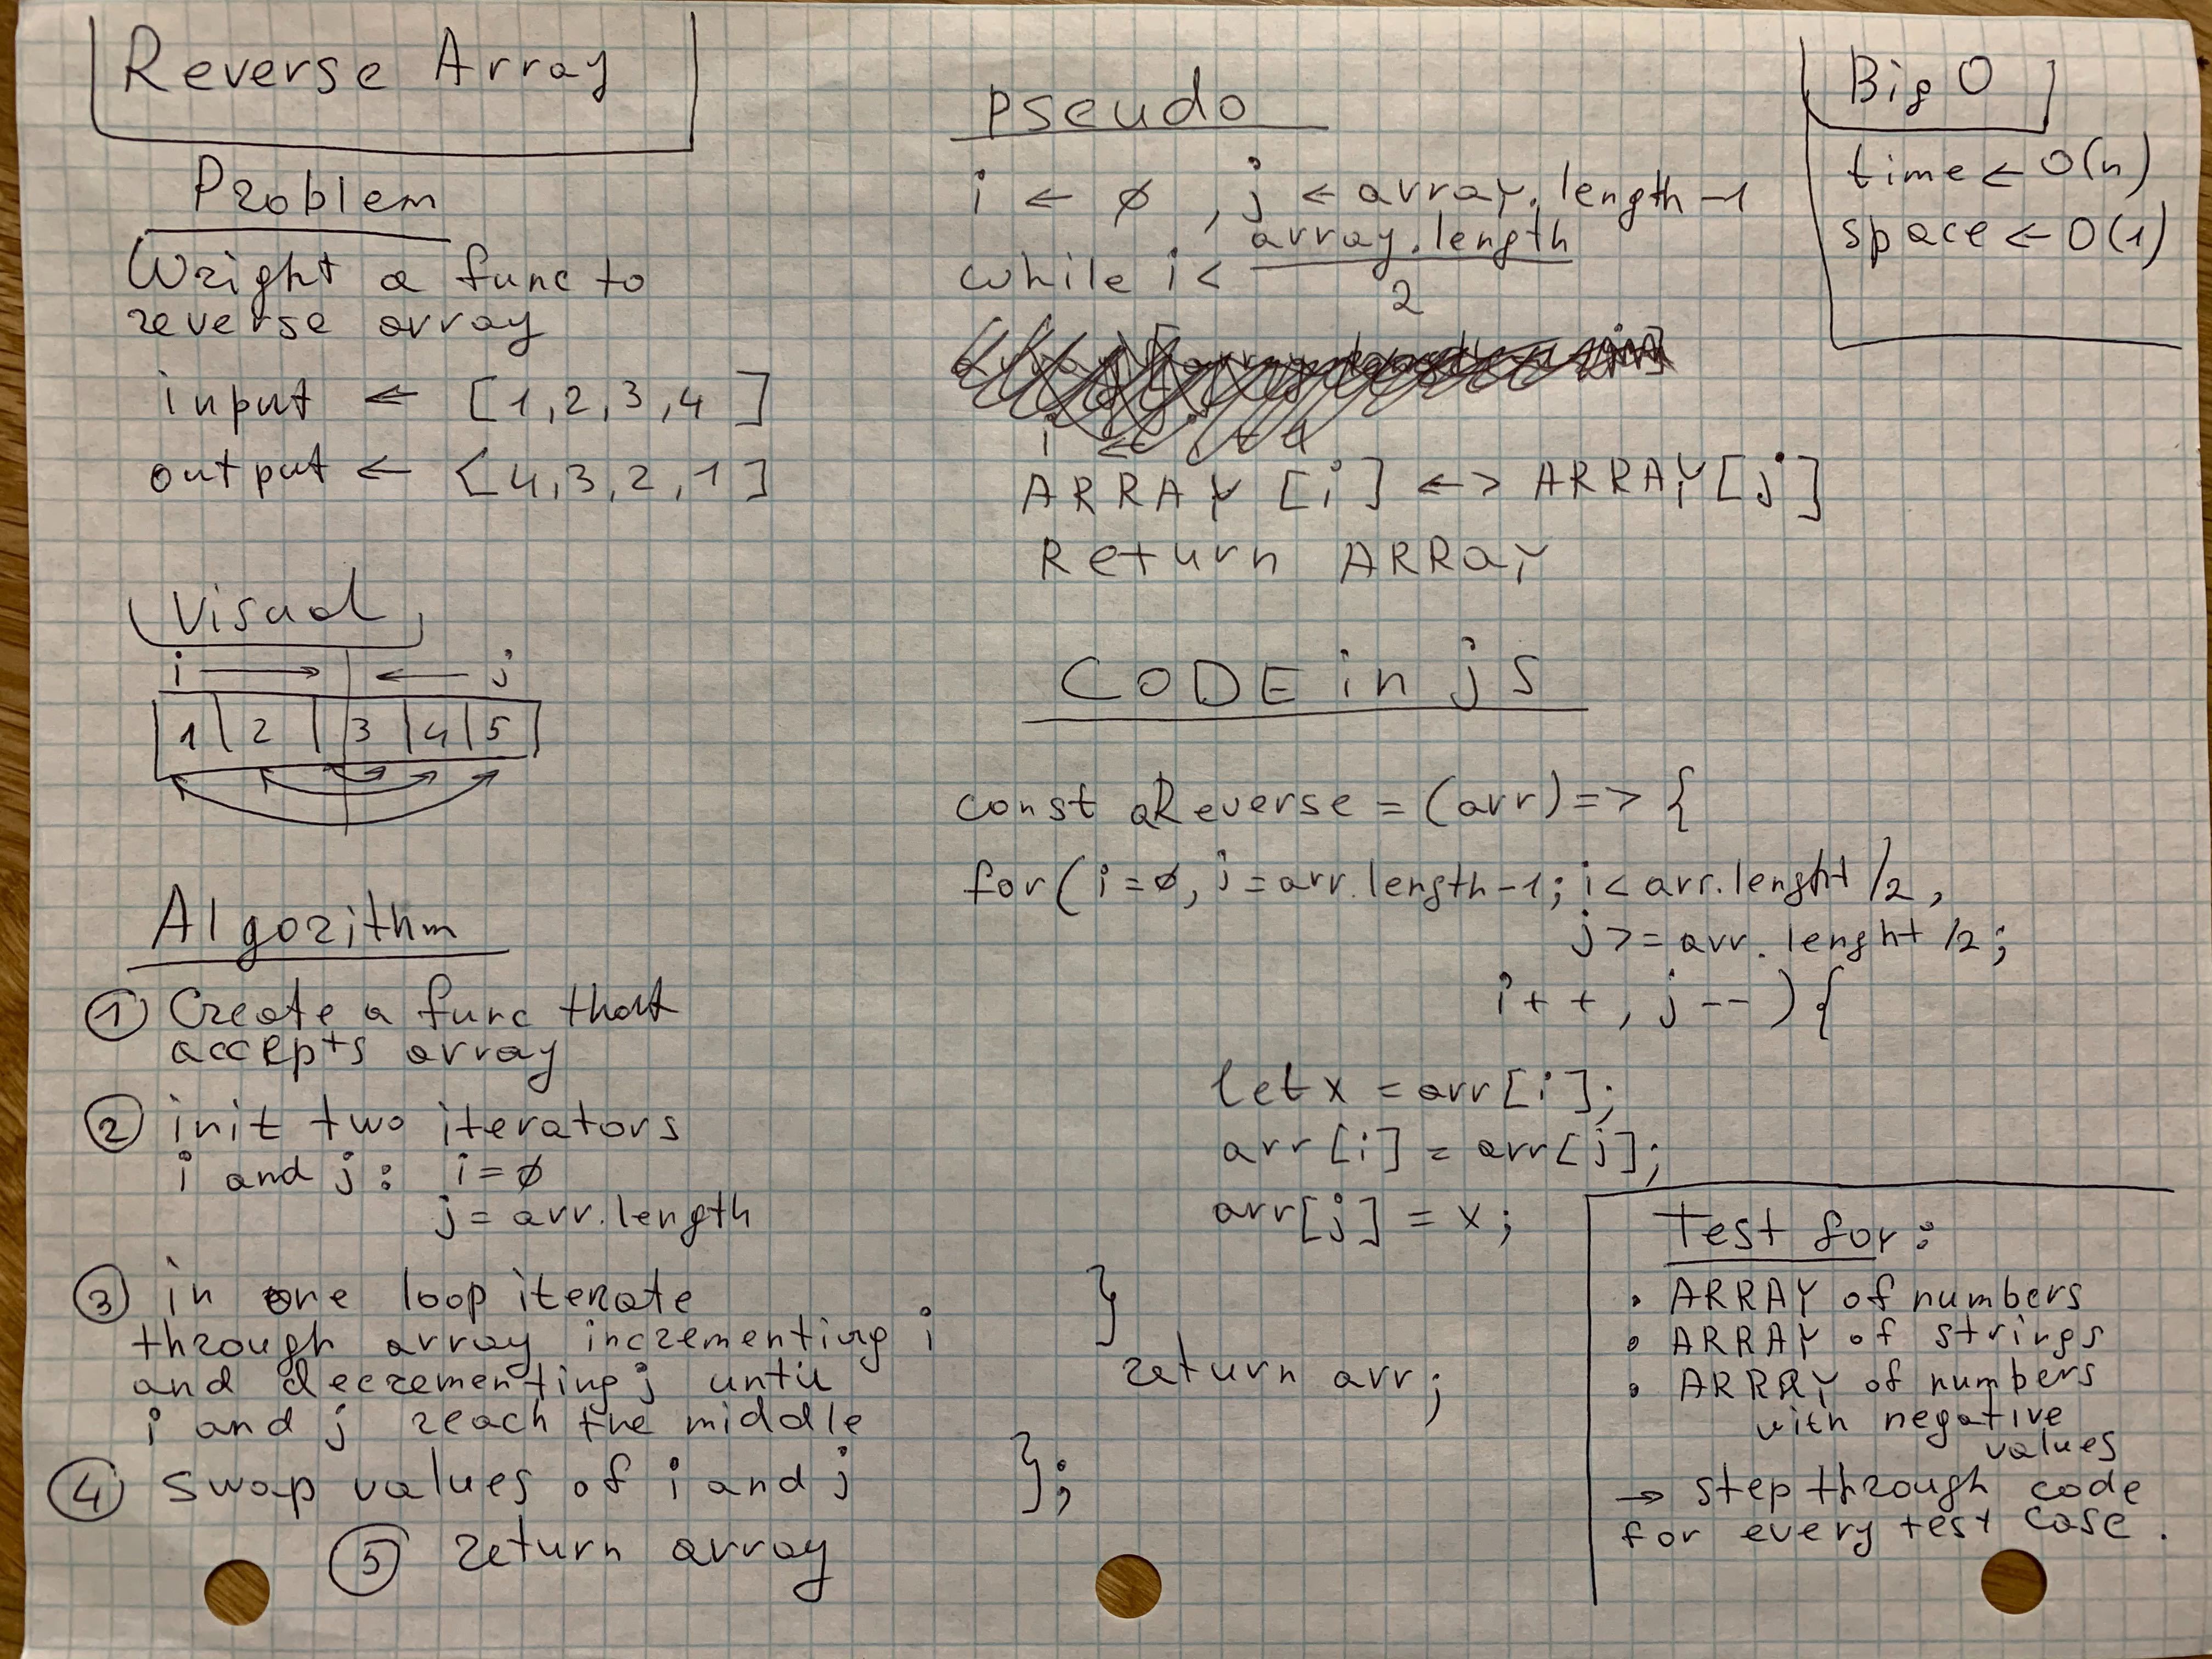 Reverse Array
Problem
Wright a func to
reverse array
input ← [1,2,3,4]
output ← [4,3,2,1]
Visual
i → ← j
1 2 3 4 5
Algorithm
① Create a func that
accepts array
② init two iterators
i and j: i=ø
j=arr.length
③ in one loop iterate
through array incrementing i
and decrementing j until
i and j reach the middle
④ swap values of i and j
⑤ return array
pseudo
i ← ø, j ← array.length-1
while i < array.length
2
ARRAY [i] <-> ARRAY[j]
Return ARRay
CODE in js
const aReverse = (arr) => {
for(i=ø, j=arr.length-1; i< arr.lenght/2,
j>=arr.lenght/2;
i++, j--){
let x = arr[i];
arr[i] = arr[j];
arr[j] = x;
}
return arr;
};
Big O
time ← O(n)
space ← O(1)
Test for:
• ARRAY of numbers
• ARRAY of strings
• ARRAY of numbers
with negative
values
→ step through code
for every test case.